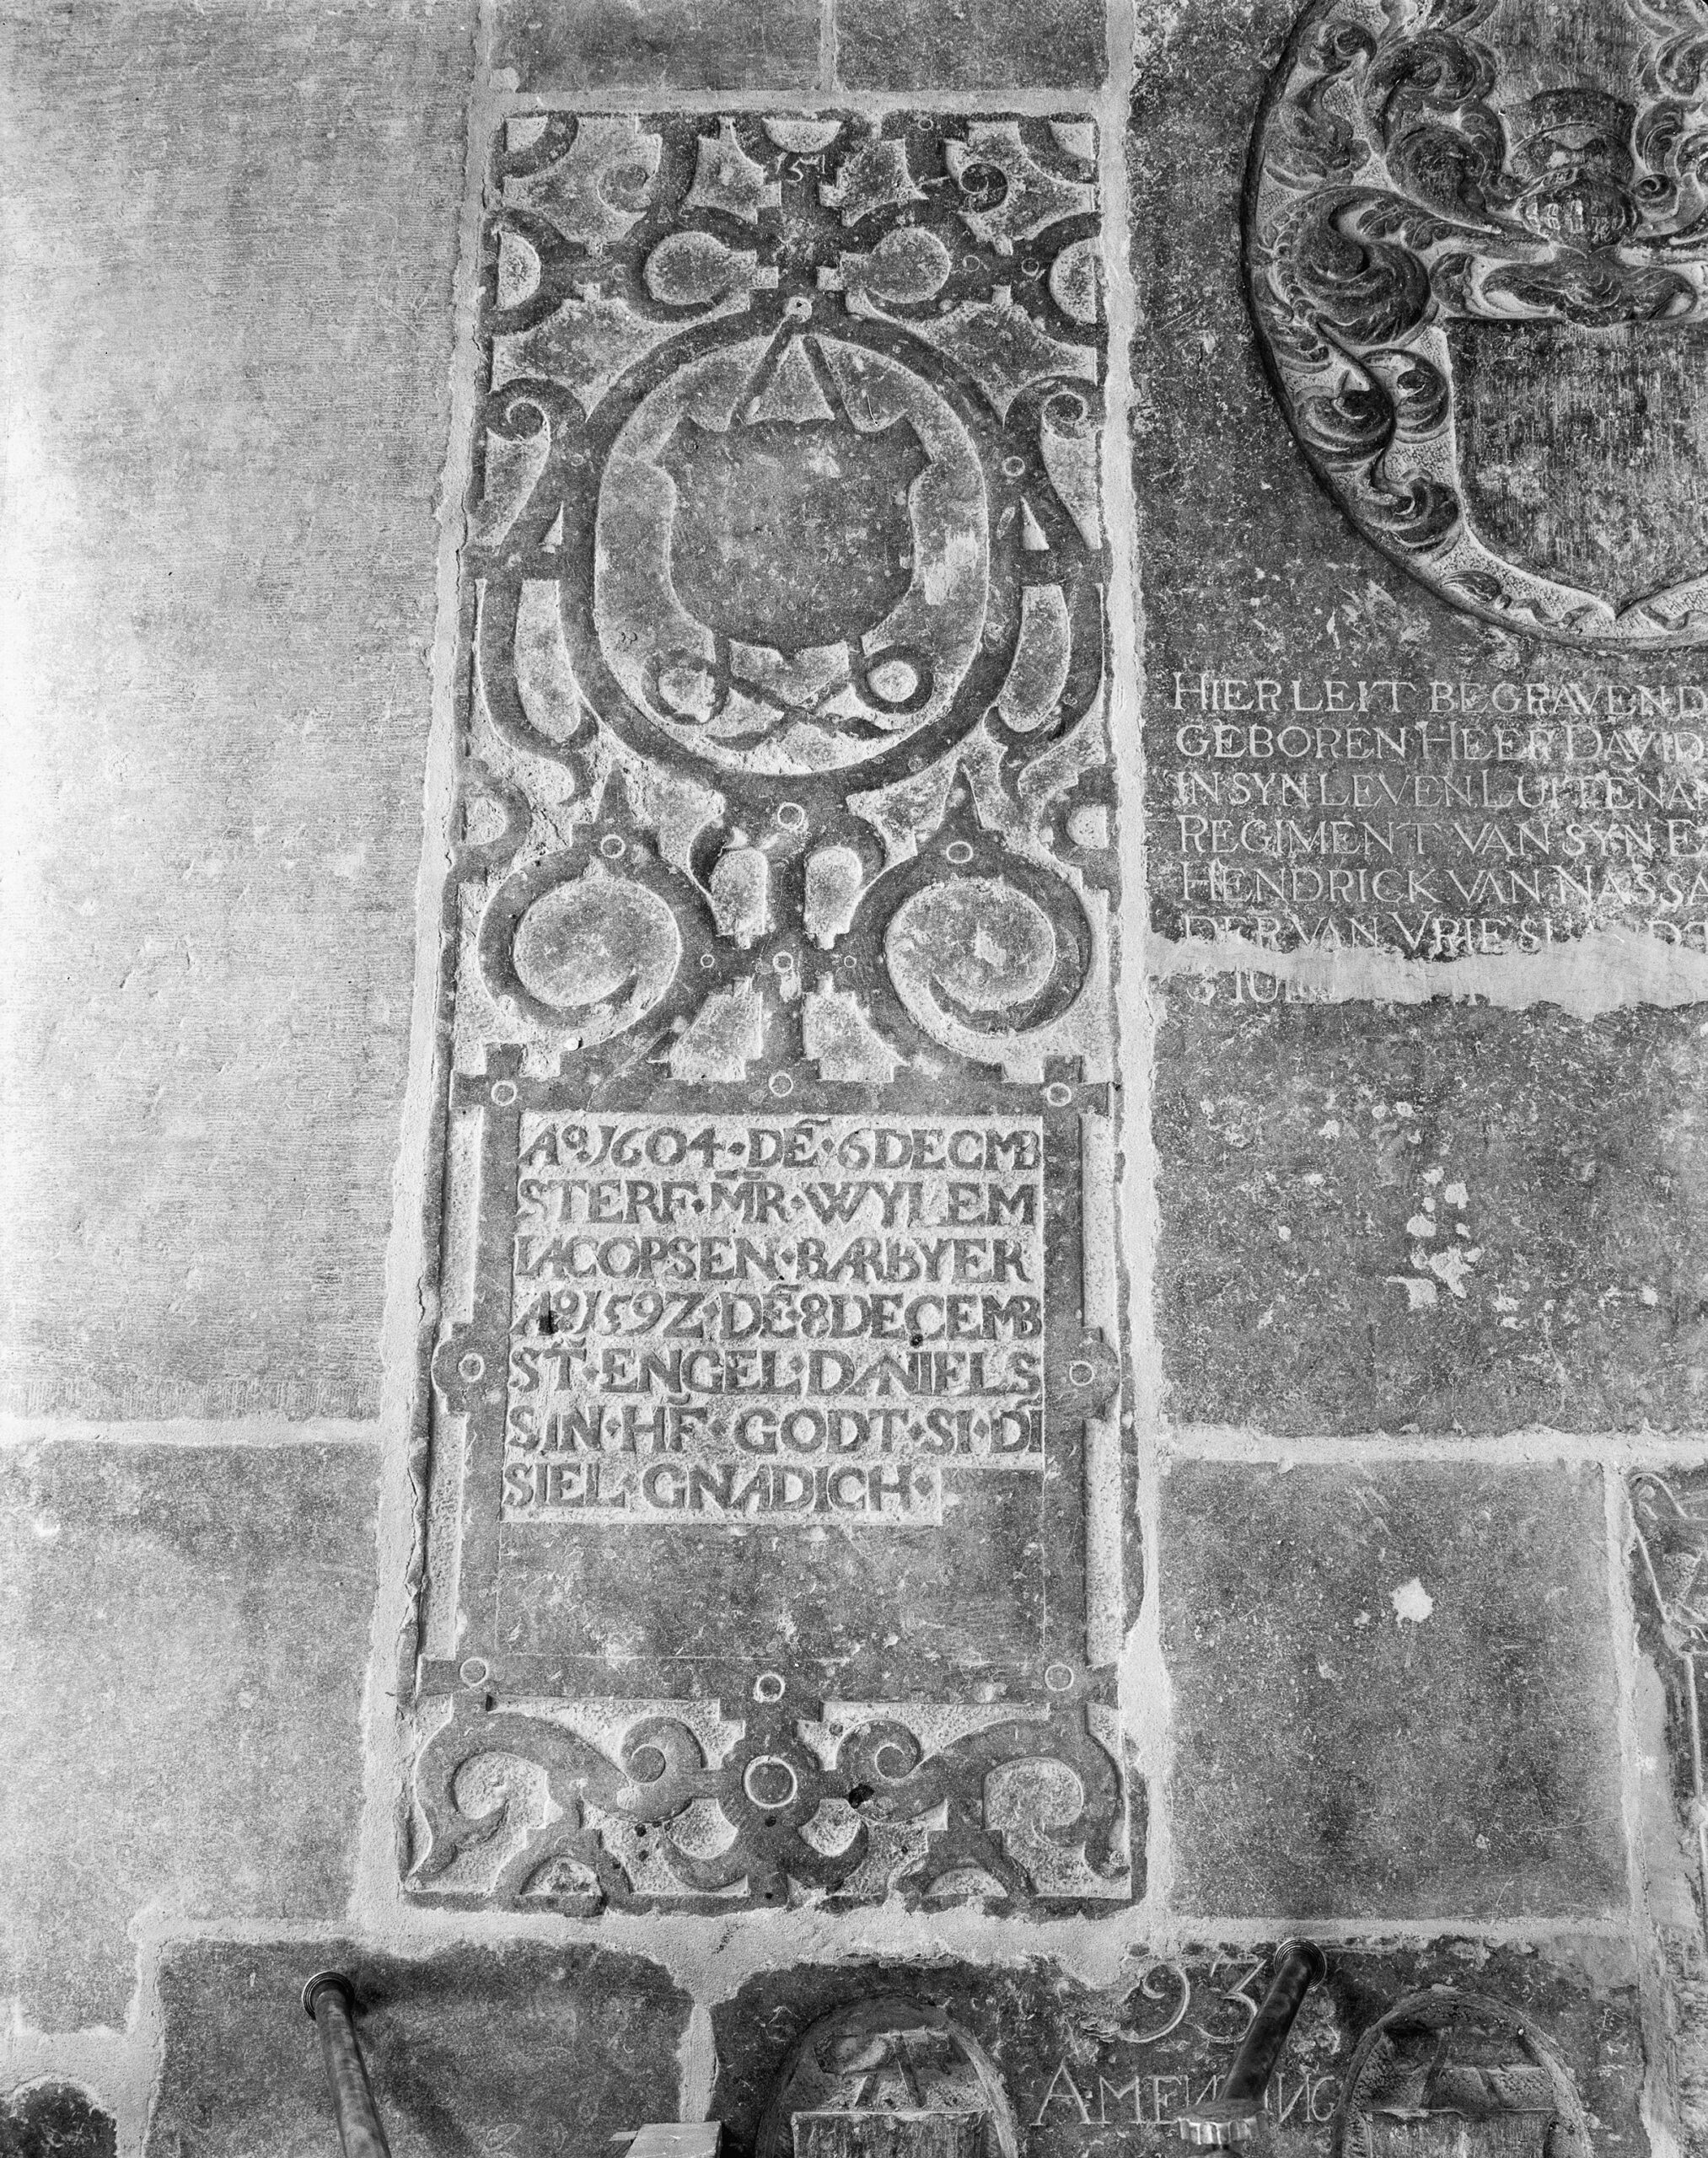 157
Aº 1604 · DĒ · 6 DECMB
STERF · MR · WYLEM
IACOPSEN · BARBYER
Aº 1592 · DĒ 8 DECEMB
ST · ENGEL · DANIELS
SIN · HF · GODT · SI · DI
SIEL · GNADICH ·
HIER LEIT BEGRAVEN D
GEBOREN HEER DAVID
IN SYN LEVEN LUITENA
REGIMENT VAN SYN E
HENDRICK VAN NASSA
DER VAN VRIESLANDT
93